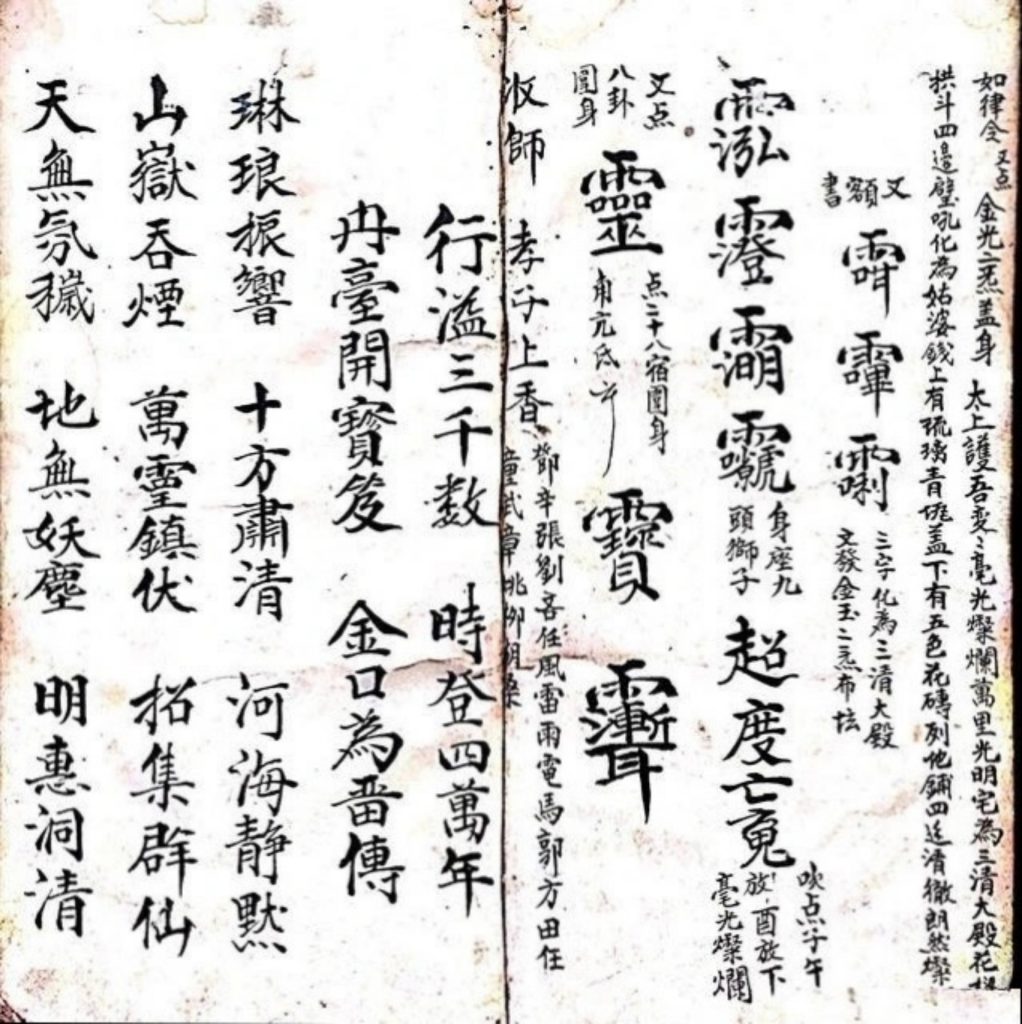 如律令 又点 金光二炁盖身 太上護吾变〻毫光燦爛萬里光明宅為三清大殿花
拱斗四邊壁吼化為姑婆錢上有琉璃青 盖下有五色花磚列地鋪四廷清徹朗然燦
又額書
三字化為三清大殿
文發金玉二炁布坛
身座九
頭獅子
超度亡魂
吙点子午
放酉放下
毫光燦爛
又点
八卦
圓身
靈
点二十八宿圓身
角亢氐
寶
收師 孝子上香
鄧辛張劉 任風雷雨電馬郭方田任
行溢三千数 時登四萬年
丹臺開寶笈 金口為畨傳
琳琅振響 十方肅清 河海静默
山嶽吞煙 萬靈鎮伏 招集群仙
天無氛穢 地無妖塵 明惠洞清